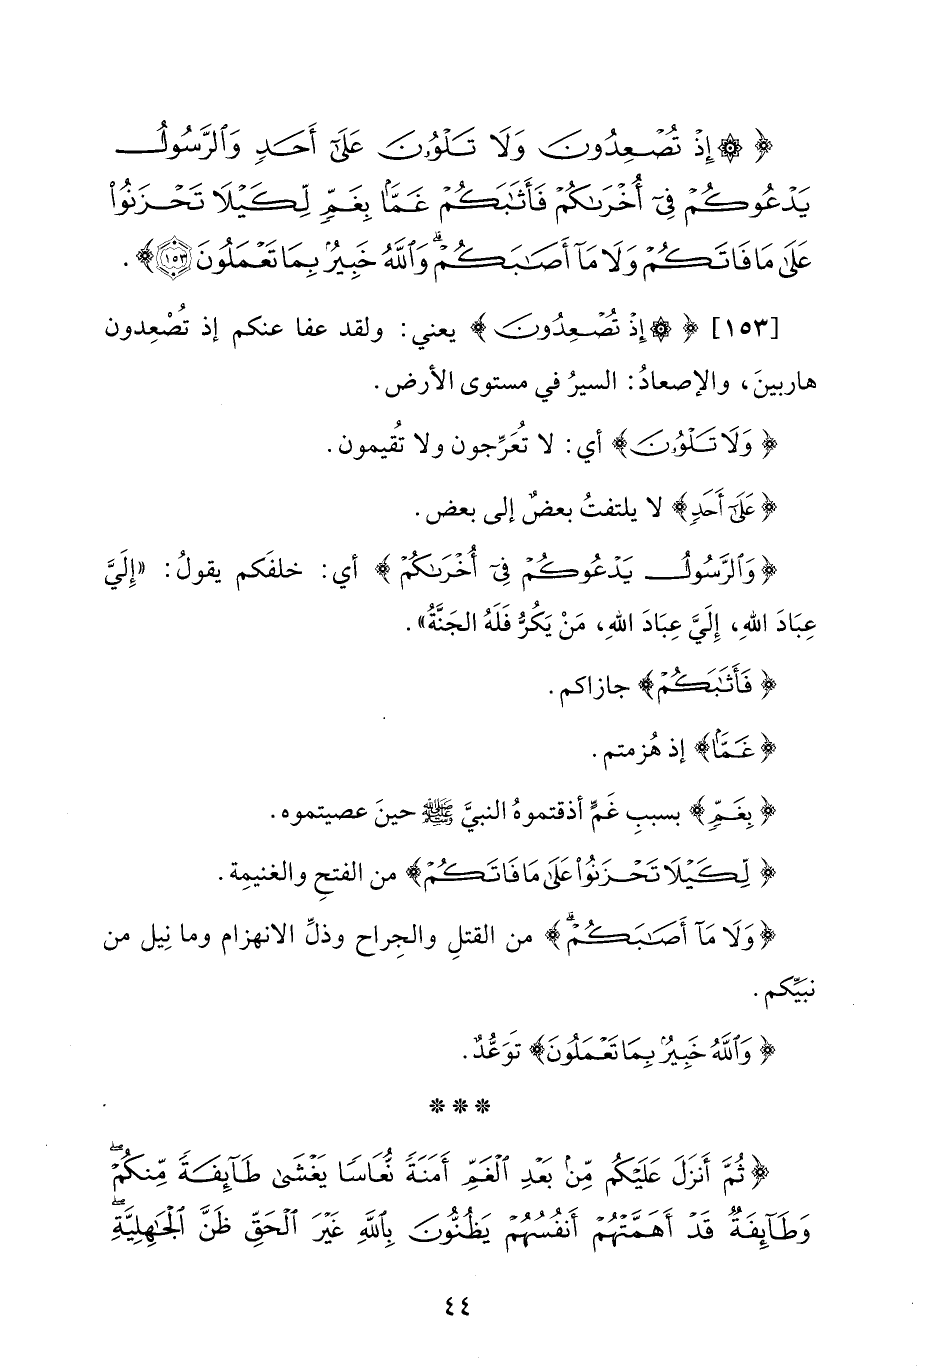 ﴿ ۞ إِذْ تُصْعِدُونَ وَلَا تَلْوُۥنَ عَلَىٰٓ أَحَدٍ وَٱلرَّسُولُ
يَدْعُوكُمْ فِىٓ أُخْرَىٰكُمْ فَأَثَٰبَكُمْ غَمًّۢا بِغَمٍّ لِّكَيْلَا تَحْزَنُوا۟
عَلَىٰ مَا فَاتَكُمْ وَلَا مَآ أَصَٰبَكُمْ ۗ وَٱللَّهُ خَبِيرٌۢ بِمَا تَعْمَلُونَ ١٥٣ ﴾ .
[١٥٣] ﴿ ۞ إِذْ تُصْعِدُونَ ﴾ يعني: ولقد عفا عنكم إذ تُصْعِدون
هاربينَ، والإصعادُ: السيرُ في مستوى الأرض.
﴿ وَلَا تَلْوُۥنَ ﴾ أي: لا تُعَرِّجون ولا تُقيمون.
﴿ عَلَىٰٓ أَحَدٍ ﴾ لا يلتفتُ بعضٌ إلى بعض.
﴿ وَٱلرَّسُولُ يَدْعُوكُمْ فِىٓ أُخْرَىٰكُمْ ﴾ أي: خلفَكم يقولُ: «إِلَيَّ
عِبَادَ اللهِ، إِلَيَّ عِبَادَ اللهِ، مَنْ يَكُرُّ فَلَهُ الجَنَّةُ».
﴿ فَأَثَٰبَكُمْ ﴾ جازاكم.
﴿ غَمًّۢا ﴾ إذ هُزمتم.
﴿ بِغَمٍّ ﴾ بسببِ غَمٍّ أذقتموهُ النبيَّ ﷺ حينَ عصيتموه.
﴿ لِّكَيْلَا تَحْزَنُوا۟ عَلَىٰ مَا فَاتَكُمْ ﴾ من الفتحِ والغنيمِة.
﴿ وَلَا مَآ أَصَٰبَكُمْ ۗ ﴾ من القتلِ والجِراح وذلِّ الانهزام وما نِيل من
نبيِّكم.
﴿ وَٱللَّهُ خَبِيرٌۢ بِمَا تَعْمَلُونَ ﴾ تَوَعُّدٌ.
* * *
﴿ ثُمَّ أَنزَلَ عَلَيْكُم مِّنۢ بَعْدِ ٱلْغَمِّ أَمَنَةً نُّعَاسًا يَغْشَىٰ طَآئِفَةً مِّنكُمْ ۖ
وَطَآئِفَةٌ قَدْ أَهَمَّتْهُمْ أَنفُسُهُمْ يَظُنُّونَ بِٱللَّهِ غَيْرَ ٱلْحَقِّ ظَنَّ ٱلْجَٰهِلِيَّةِ ۖ
٤٤